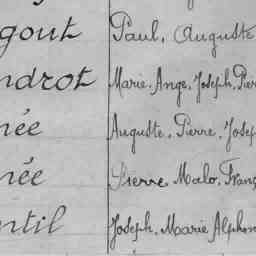 gout Paul, Auguste
ndrot Marie, Ange, Joseph, Pier
née Auguste, Pierre, Josep
née Pierre, Malo, Franç
ntil Joseph, Marie Alphon